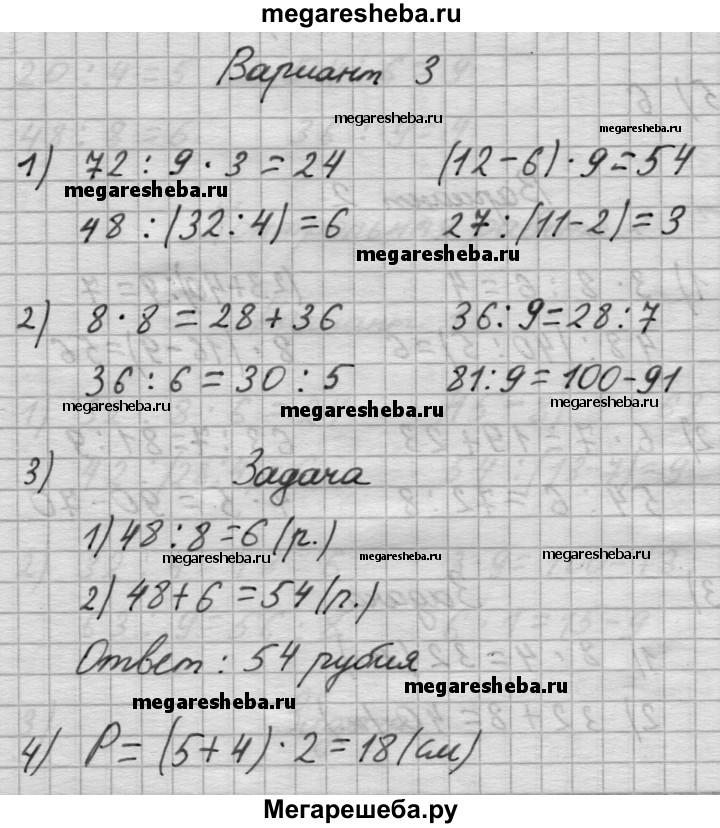 megaresheba.ru
Вариант 3
megaresheba.ru
megaresheba.ru
1) 72 : 9 · 3 = 24 (12 - 6) · 9 = 54
megaresheba.ru
48 : (32 : 4) = 6 27 : (11 - 2) = 3
megaresheba.ru
2) 8 · 8 = 28 + 36 36 : 9 = 28 : 7
36 : 6 = 30 : 5 81 : 9 = 100 - 91
megaresheba.ru megaresheba.ru megaresheba.ru
3) Задача
1) 48 : 8 = 6 (р.)
megaresheba.ru megaresheba.ru megaresheba.ru
2) 48 + 6 = 54 (р.)
Ответ : 54 рубля
megaresheba.ru megaresheba.ru
4) P = (5 + 4) · 2 = 18 (см)
Мегарешеба.ру